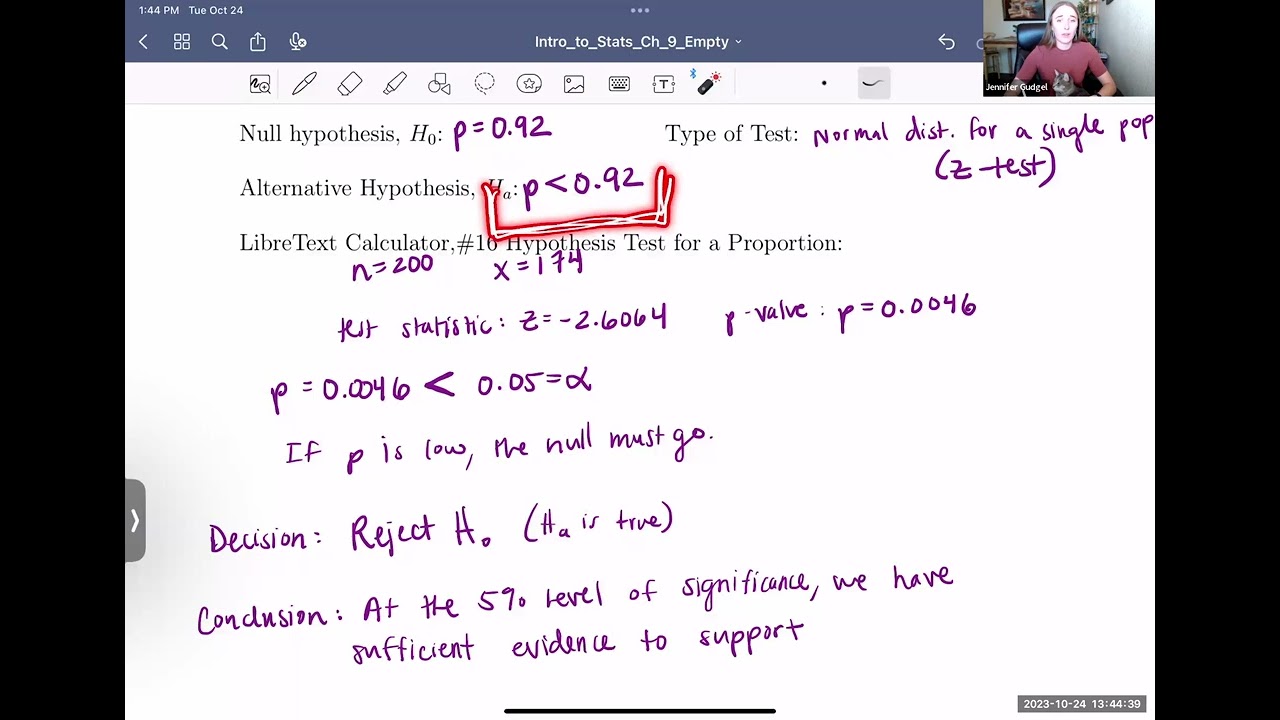 1:44 PM Tue Oct 24
Intro_to_Stats_Ch_9_Empty
Jennifer Gudgel
Null hypothesis, H0: p = 0.92
Type of Test: Normal dist. for a single pop
(z-test)
Alternative Hypothesis, Ha: p < 0.92
LibreText Calculator,#16 Hypothesis Test for a Proportion:
n = 200 x = 174
test statistic: z = -2.6064 p-value: p = 0.0046
p = 0.0046 < 0.05 = α
If p is low, the null must go.
Decision: Reject H0 (Ha is true)
Conclusion: At the 5% level of significance, we have
sufficient evidence to support
2023-10-24 13:44:39